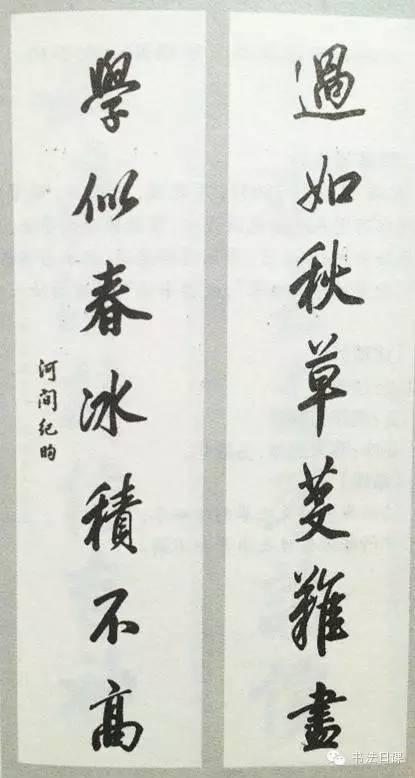 過如秋草芟難盡
學似春冰積不高
河間紀昀
书法日课